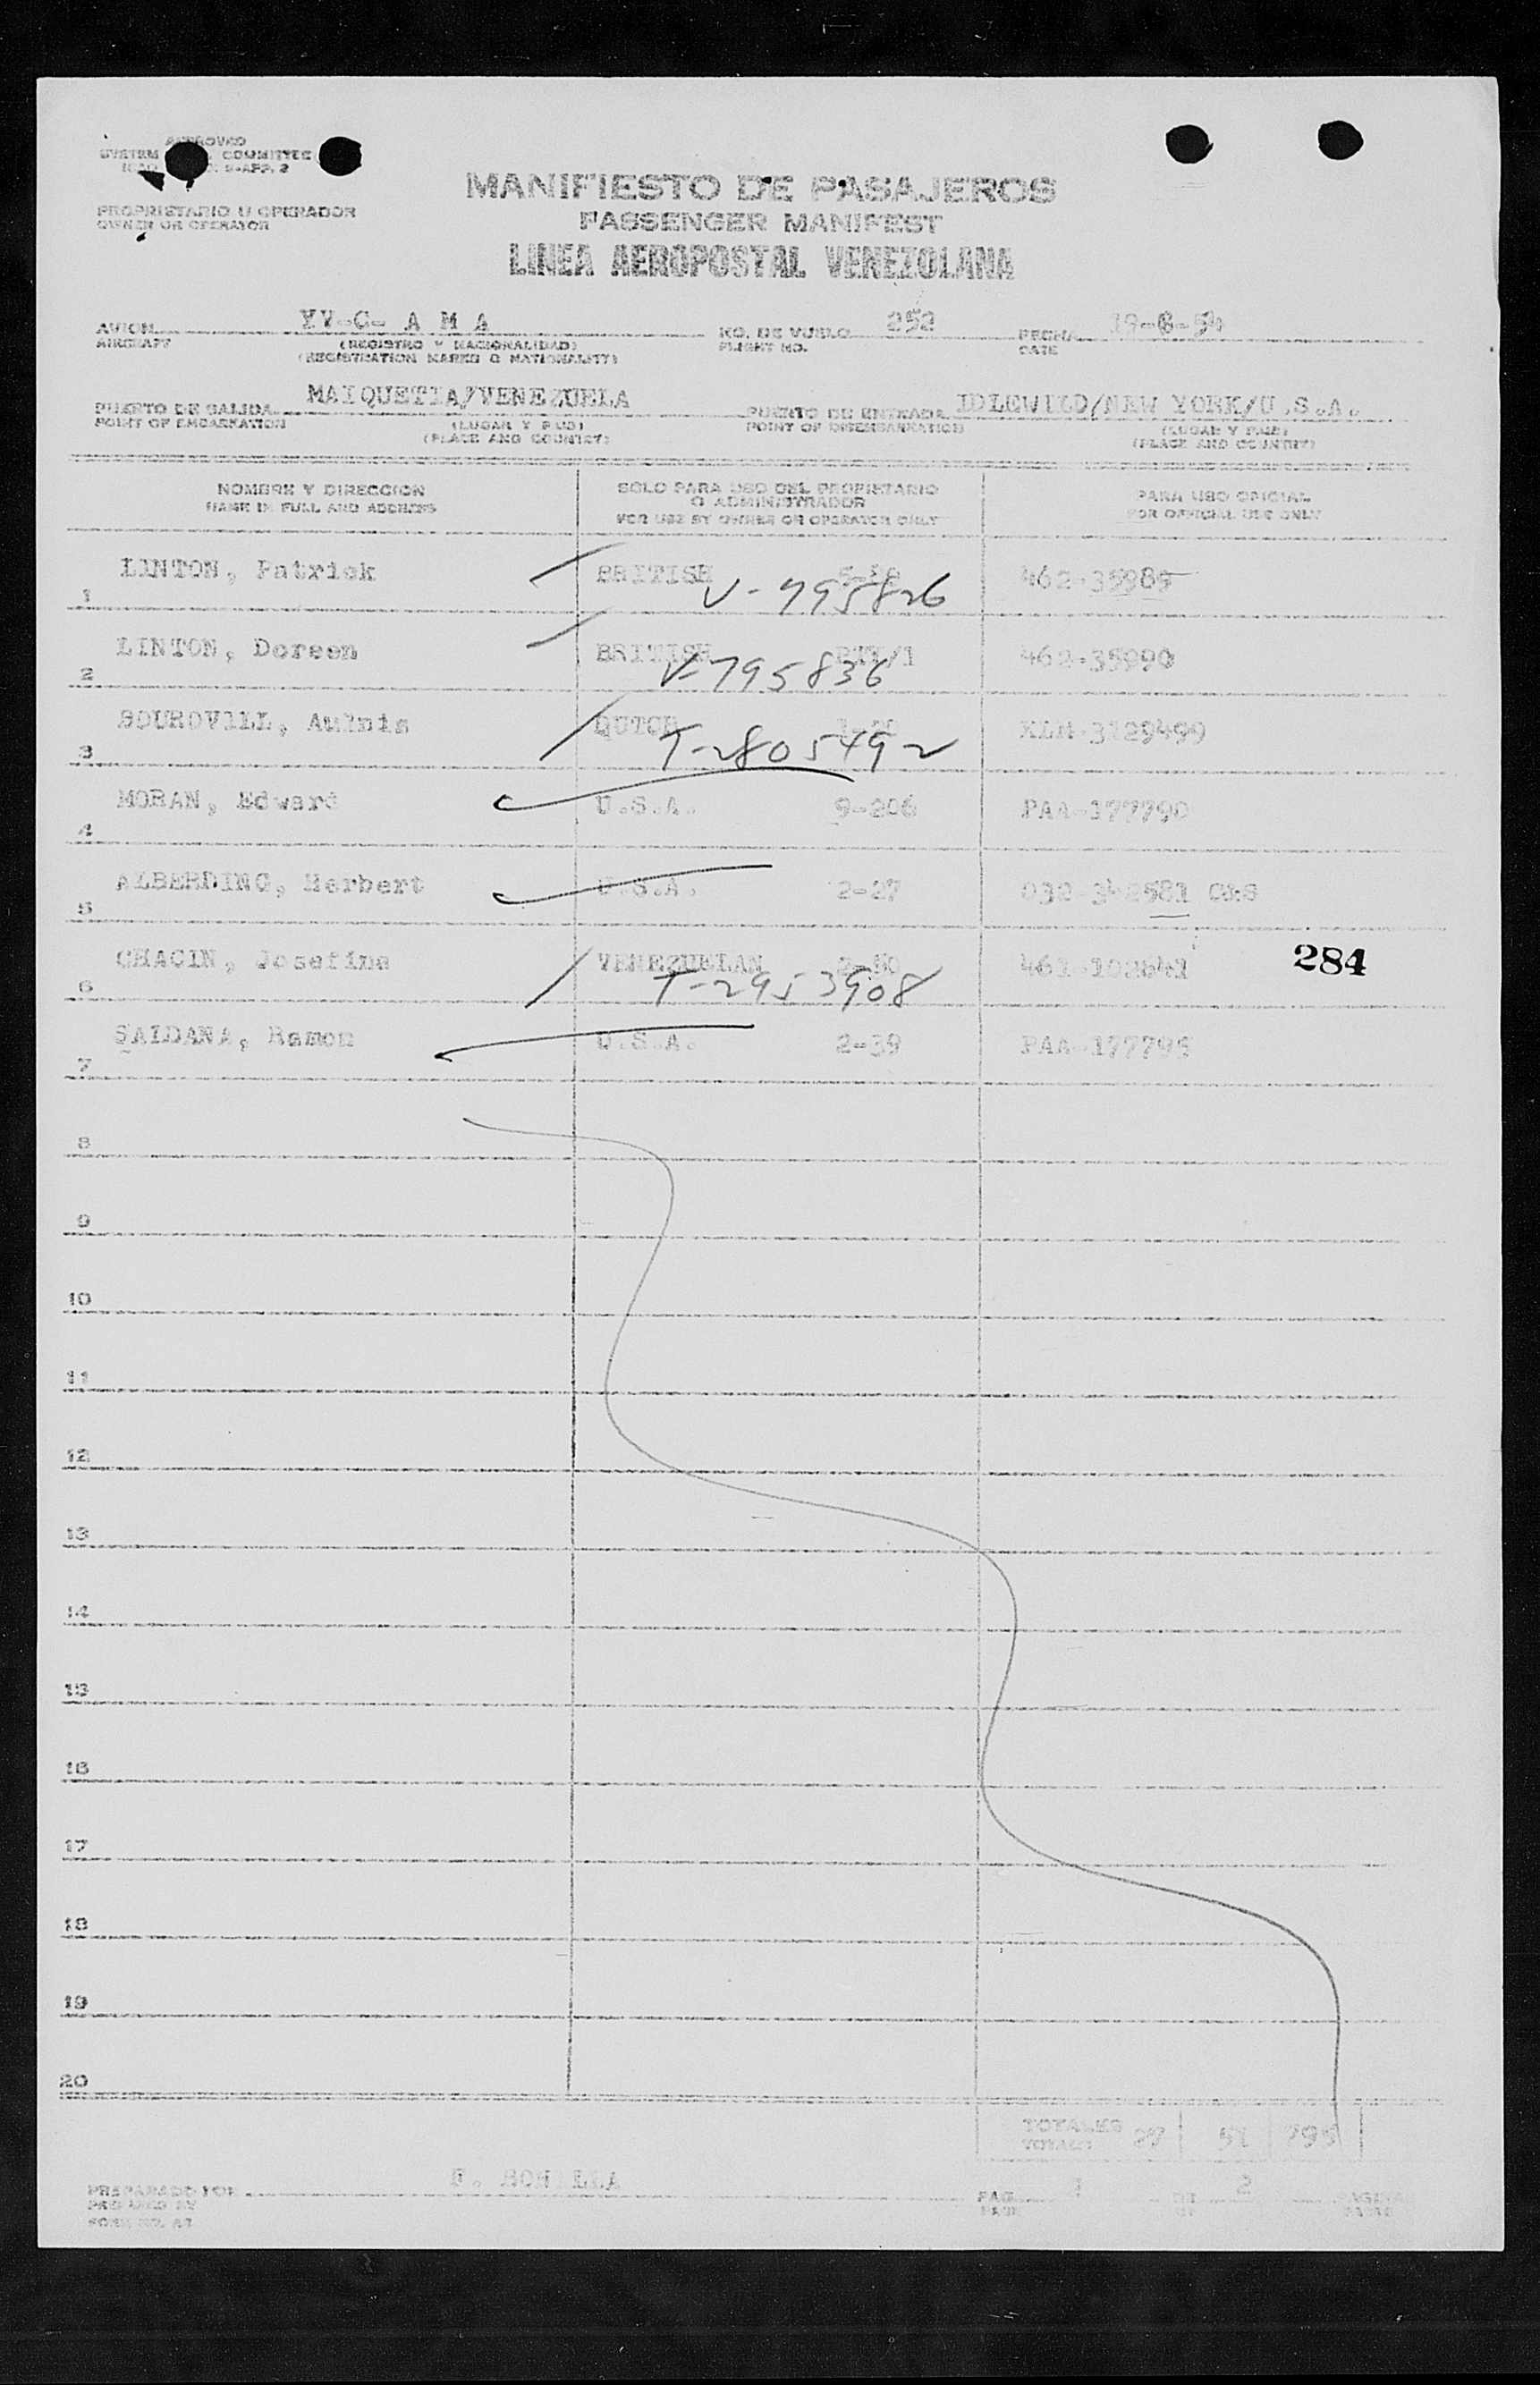 APPROVED
SYSTEM COMMITTEE
ICAO 9-APP. 2
MANIFIESTO DE PASAJEROS
PROPRIETARIO U OPERADOR
OWNER OR OPERATOR
PASSENGER MANIFEST
LINEA AEROPOSTAL VENEZOLANA
AVION YV-C- A M A NO. DE VUELO 252 FECHA 19-6-54
AIRCRAFT (REGISTRO Y NACIONALIDAD) FLIGHT NO. DATE
(REGISTRATION MARKS & NATIONALITY)
PUERTO DE SALIDA MAIQUETIA/VENEZUELA PUERTO DE ENTRADA IDLEWILD/NEW YORK/U.S.A.
POINT OF EMBARKATION (LUGAR Y PAIS) POINT OF DISEMBARKATION (LUGAR Y PAIS)
(PLACE AND COUNTRY) (PLACE AND COUNTRY)
NOMBRE Y DIRECCION SOLO PARA USO DEL PROPIETARIO PARA USO OFICIAL
NAME IN FULL AND ADDRESS O ADMINISTRADOR FOR OFFICIAL USE ONLY
FOR USE BY OWNER OR OPERATOR ONLY
LINTON, Patrick BRITISH 462-35985
1 V-795826
LINTON, Doreen BRITISH 462-35990
2 V-795836
3 T-2805492
MORAN, Edward U.S.A. 9-206 PAA-177790
4
ALBERDING, Herbert U.S.A. 2-27
5
CHACIN, Josefina VENEZUELAN 284
6 T-2953908
SALDANA, Ramon U.S.A. 2-39
7
8
9
10
11
12
13
14
15
16
17
18
19
20
TOTALES 27 51 795
TOTALS
PREPARADO POR PAG. 1 DE 2 PAGINAS
PREPARED BY PAGE OF PAGES
FORM NO. A7